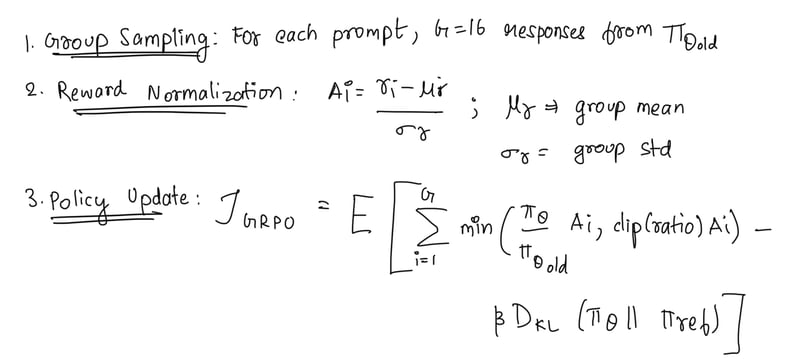 1. Group Sampling: For each prompt, G=16 responses from πθold
2. Reward Normalization: Ai = (ri − μr) / σr ; μr ⇒ group mean
σr = group std
3. Policy Update: J_GRPO = E [ ∑_{i=1}^{G} min( πθ / πθold Ai, clip(ratio) Ai) −
β D_KL (πθ || πref) ]